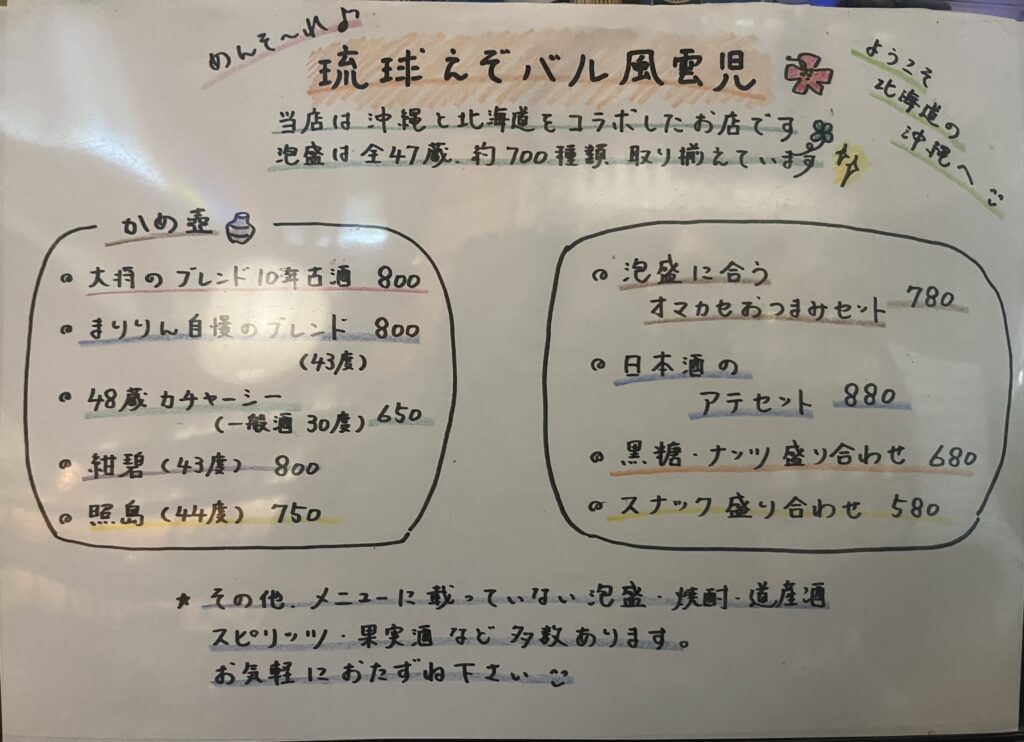 めんそ〜れ♪
琉球えぞバル風雲児
ようこそ
北海道の
沖縄へ
当店は沖縄と北海道をコラボしたお店です
泡盛は全47蔵、約700種類 取り揃えています
かめ壺
大将のブレンド10年古酒 800
まりりん自慢のブレンド 800
(43度)
48蔵カチャーシー
(一般酒 30度) 650
紺碧(43度) 800
照島(44度) 750
泡盛に合う
オマカセおつまみセット 780
日本酒の
アテセット 880
黒糖・ナッツ盛り合わせ 680
スナック盛り合わせ 580
★ その他、メニューに載っていない泡盛・焼酎・道産酒
スピリッツ・果実酒など多数あります。
お気軽におたずね下さい